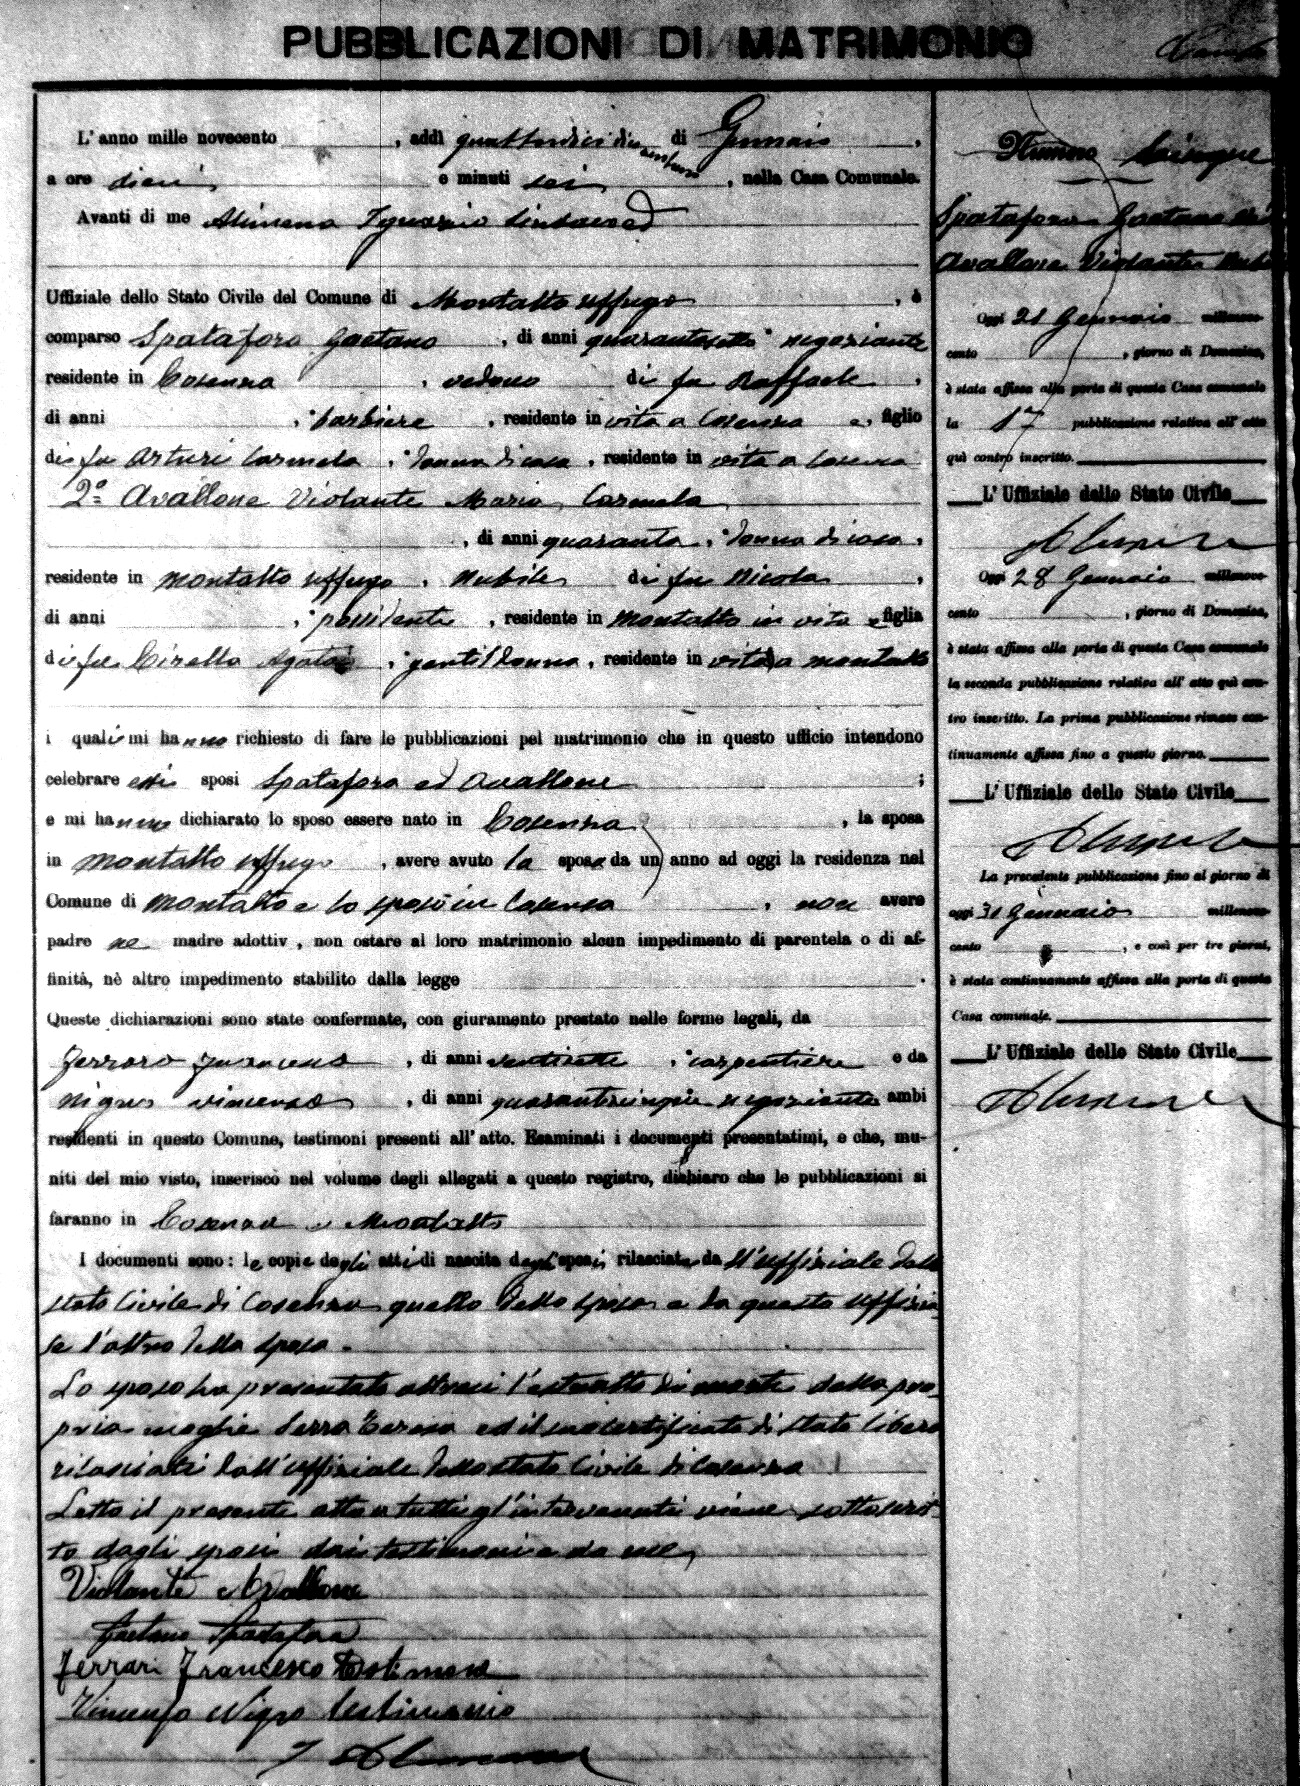 PUBBLICAZIONI DI MATRIMONIO
L' anno mille novecento , addì quattordici di Gennaio ,
a ore dieci e minuti sei , nella Casa Comunale.
Avanti di me Alimena Ignazio Sindaco
Uffiziale dello Stato Civile del Comune di Montalto Uffugo , è
comparso Spatafora Gaetano , di anni quarantasette , negoziante
residente in Cosenza , vedovo di fu Raffaele ,
di anni , barbiere , residente in vita a Cosenza e , figlio
di fu Arturi Carmela , donna di casa , residente in vita a Cosenza
2º Avallone Violante Maria Carmela
, di anni quaranta , donna di casa ,
residente in Montalto Uffugo , nubile di fu Nicola ,
di anni , possidente , residente in Montalto in vita e figlia
di fu Cirello Agata , gentildonna , residente in vita a Montalto
i quali mi hanno richiesto di fare le pubblicazioni pel matrimonio che in questo ufficio intendono
celebrare essi sposi Spatafora ed Avallone ;
e mi hanno dichiarato lo sposo essere nato in Cosenza , la sposa
in Montalto Uffugo , avere avuto la sposa da un anno ad oggi la residenza nel
Comune di Montalto e lo sposo in Cosenza , non avere
padre ne madre adottiv , non ostare al loro matrimonio alcun impedimento di parentela o di af-
finità, nè altro impedimento stabilito dalla legge .
Queste dichiarazioni sono state confermate, con giuramento prestato nelle forme legali, da
Ferraro Francesco , di anni ventisette , carpentiere e da
Nigro Vincenzo , di anni quarantacinque negoziante ambi
residenti in questo Comune, testimoni presenti all' atto. Esaminati i documenti presentatimi, e che, mu-
niti del mio visto, inserisco nel volume degli allegati a questo registro, dichiaro che le pubblicazioni si
faranno in Cosenza e Montalto
I documenti sono: le copie degli atti di nascita degli sposi rilasciate da ll'uffiziale dello
stato Civile di Cosenza quello dello sposo e da questo uffizia
le l'altro della sposa.
Lo sposo ha presentato altresì l'estratto di morte della pro
pria moglie Serra Teresa ed il suo certificato di stato libero
rilasciati dall'uffiziale dello stato Civile di Cosenza
Letto il presente atto a tutti gl'intervenuti viene sottoscrit
to dagli sposi dai testimoni e da me,
Violante Avallone
Gaetano Spatafora
Ferrari Francesco testimone
Vincenzo Nigro testimonio
I Alimena
Numero Cinque
Spatafora Gaetano ed
Avallone Violante
Oggi 21 Gennaio millenove-
cento , giorno di Domenica,
è stata affissa alla porta di questa Casa comunale
la 1ª pubblicazione relativa all' atto
quì contro inscritto.
L' Uffiziale dello Stato Civile
Alimena
Oggi 28 Gennaio millenove-
cento , giorno di Domenica,
è stata affissa alla porta di questa Casa comunale
la seconda pubblicazione relativa all' atto quì con-
tro inscritto. La prima pubblicazione rimase con-
tinuamente affissa fino a questo giorno.
L' Uffiziale dello Stato Civile
Alimena
La precedente pubblicazione fino al giorno di
oggi 31 Gennaio millenove-
cento , e così per tre giorni,
è stata continuamente affissa alla porta di questa
Casa comunale.
L' Uffiziale dello Stato Civile
Alimena